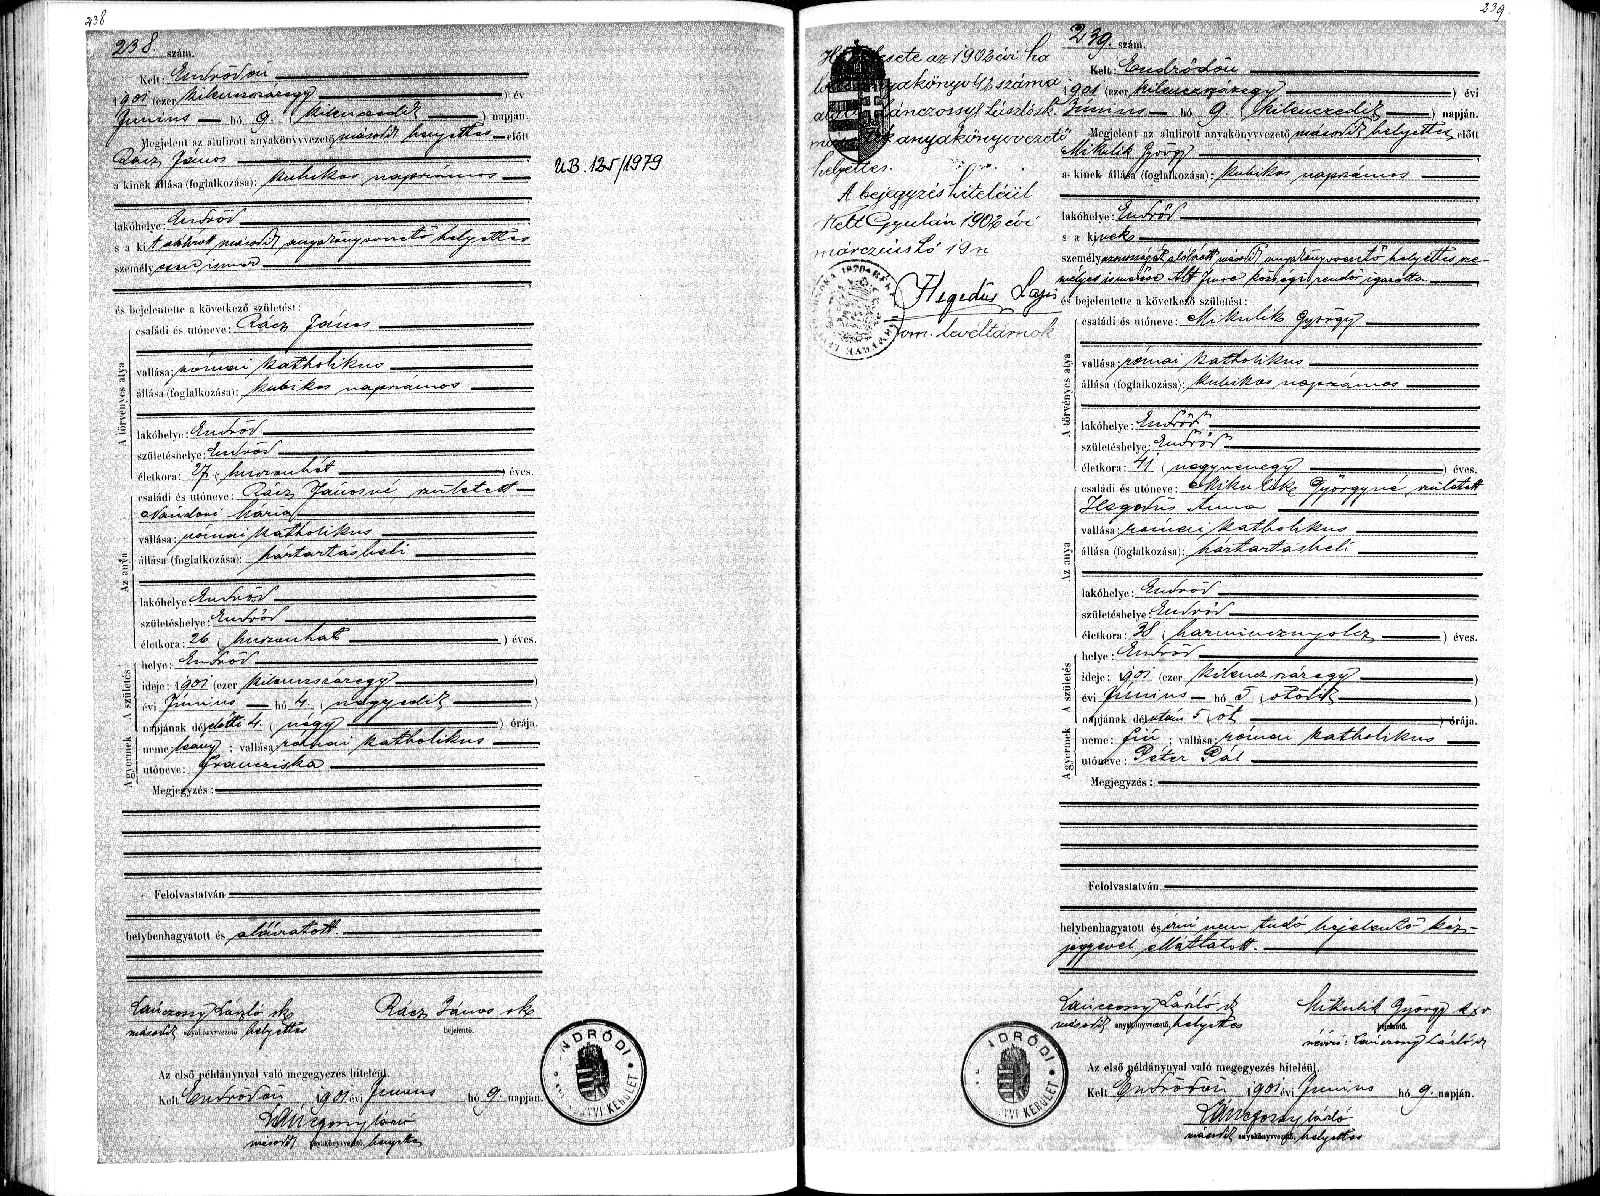 238
238. szám.
Kelt: Endrődön
1901 (ezer kilenczszázegy) év
Junius hó 9. (kilenczedik) napján.
Megjelent az alulirott anyakönyvvezető második helyettes előtt
Rácz János
a kinek állása (foglalkozása): kubikos napszámos
lakóhelye: Endrőd
s a kit alólirott második anyakönyvvezető helyettes
személyesen ismer
és bejelentette a következő születést:
A törvényes atya
családi és utóneve: Rácz János
vallása: római katholikus
állása (foglalkozása): kubikos napszámos
lakóhelye: Endrőd
születéshelye: Endrőd
életkora: 27 (huszonhét) éves.
Az anya
családi és utóneve: Rácz Jánosné született
Nándori Mária
vallása: római katholikus
állása (foglalkozása): háztartásbeli
lakóhelye: Endrőd
születéshelye: Endrőd
életkora: 26 (huszonhat) éves.
A születés
helye: Endrőd
ideje: 1901 (ezer kilenczszázegy)
évi Junius hó 4. (negyedik)
napjának délelőtti 4. (négy) órája.
A gyermek
neme: leány; vallása: római katholikus
utóneve: Francziska
Megjegyzés:
Felolvastatván
helybenhagyatott és aláiratott.
Lánczossy László sk
Rácz János sk
második anyakönyvvezető helyettes
bejelentő.
Az első példánynyal való megegyezés hiteléül.
Kelt Endrődön, 1901 évi Junius hó 9. napján.
Lánczossy László
második anyakönyvvezető helyettes
ENDRŐDI
U.B. 125/1979
239.
az 1902 évi ha
számа
Lánczossy László sk.
anyakönyvvezető
helyettes.
A bejegyzés hiteléül
Kelt Gyulán 1902 évi
márczius hó 19-n
Hegedűs Lajos
levéltárnok
239. szám.
Kelt: Endrődön
1901 (ezer kilenczszázegy) évi
Junius hó 9. (kilenczedik) napján.
Megjelent az alulirott anyakönyvvezető második helyettes előtt
Mikulik György
a kinek állása (foglalkozása): kubikos napszámos
lakóhelye: Endrőd
s a kinek
személyazonosságát alólirott második anyakönyvvezető helyettes sze-
mélyes ismerőse Alt Imre községi rendőr igazolta
és bejelentette a következő születést:
A törvényes atya
családi és utóneve: Mikulik György
vallása: római katholikus
állása (foglalkozása): kubikos napszámos
lakóhelye: Endrőd
születéshelye: Endrőd
életkora: 41 (negyvenegy) éves.
Az anya
családi és utóneve: Mikulik Györgyné született
Hegedűs Anna
vallása: római katholikus
állása (foglalkozása): háztartásbeli
lakóhelye: Endrőd
születéshelye: Endrőd
életkora: 38 (harmincznyolcz) éves.
A születés
helye: Endrőd
ideje: 1901 (ezer kilenczszázegy)
évi Junius hó 5 (ötödik)
napjának délutáni 5 (öt) órája.
A gyermek
neme: fiú; vallása: római katholikus
utóneve: Péter Pál
Megjegyzés:
Felolvastatván
helybenhagyatott és irni nem tudó bejelentő kéz-
jegyével elláttatott.
Lánczossy László sk
Mikulik György
második anyakönyvvezető helyettes
bejelentő.
névíró: Lánczossy László sk
Az első példánynyal való megegyezés hiteléül.
Kelt Endrődön 1901 évi Junius hó 9. napján.
Lánczossy László
második anyakönyvvezető helyettes
ENDRŐDI